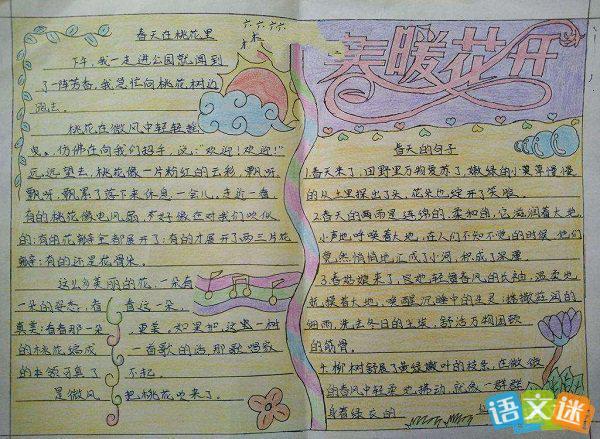 春天在桃花里
下午,我一走进公园就闻到
了一阵芳香,我急忙向桃花树边
跑去。
桃花在微风中轻轻摇
曳,仿佛在向我们招手,说:"欢迎!欢迎!"
远远望去,桃花像一片粉红的云彩,飘呀,
飘呀,飘累了落下来休息一会儿,走近一看
有的桃花像电风扇,不好像在对我们吹似
的;有的花瓣全都展开了;有的才展开了两三片花
瓣;有的还是花骨朵。
这么多美丽的花,一朵有
一朵的姿态,看看这一朵,
真美;看看那一朵,更美,如果把这里一树
的桃花编成一首歌的话,那歌唱家
的本领可真了不起。
是微风把桃花吹来了。
春暖花开
春天的句子
1.春天来了,田野里万物复苏了,嫩绿的小草慢慢
的从土里探出了头,花朵也绽开了笑脸。
2.春天的雨而是连绵的、柔和的,它滋润着大地,
小声地呼唤着大地,在人们不知不觉的时候,他们
竟然悄悄地汇成了小河,积成了深潭
3.春姑娘来了,只她轻着春风的长袖,温柔地
抚摸着大地,唤醒沉睡中的生灵;播撒滋润的
细雨,洗去冬日的尘埃,舒活万物困顿
的筋骨。
4.柳树舒展了黄绿嫩叶的枝条,在微微
的春风中轻柔地拂动,就像一群群
身着绿衣的
语文迷